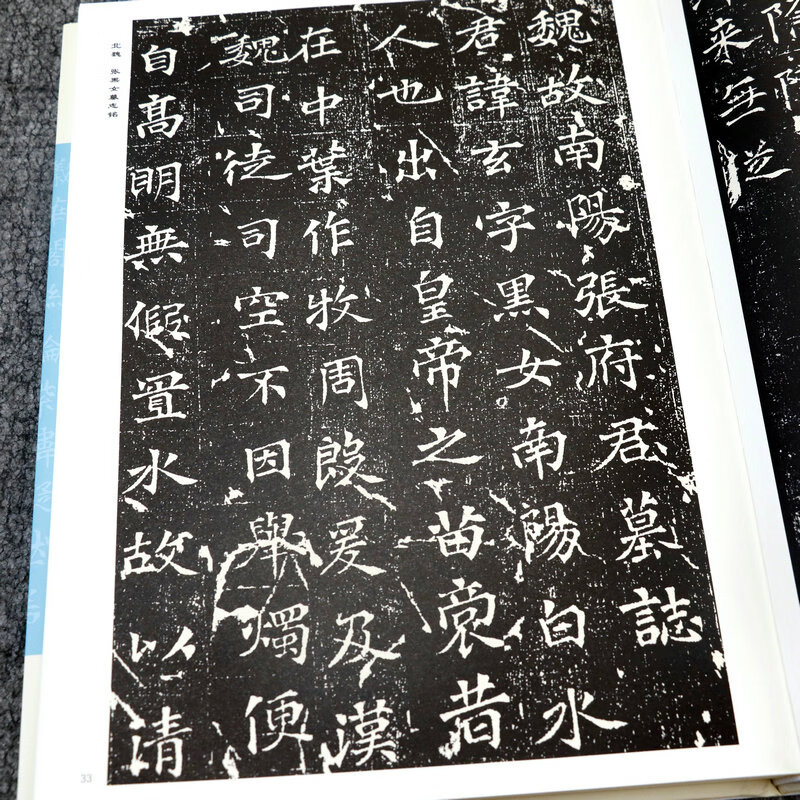 魏故南陽張府君墓誌
君諱玄字黑女南陽白水
人也出自皇帝之苗裔昔
在中葉作牧周殷爰及漢
魏司徒司空不因舉燭便
自高明無假置水故以清
北魏 张黑女墓志铭
33
來無